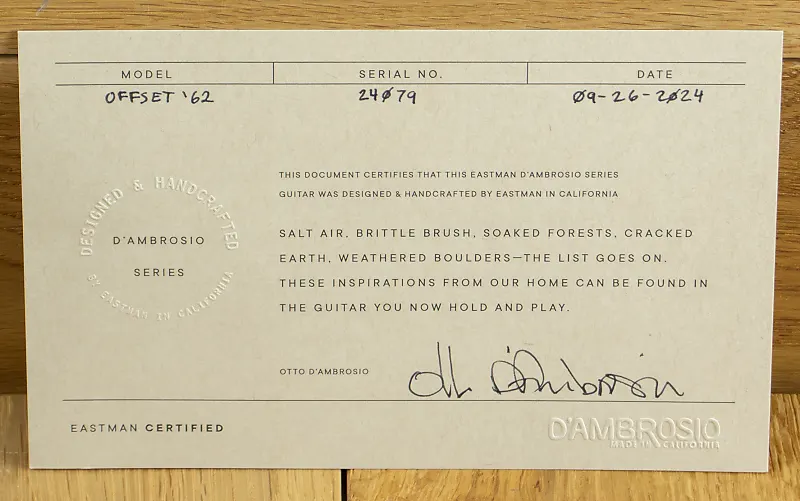 MODEL SERIAL NO. DATE
OFFSET '62 24079 09-26-2024
THIS DOCUMENT CERTIFIES THAT THIS EASTMAN D'AMBROSIO SERIES
GUITAR WAS DESIGNED & HANDCRAFTED BY EASTMAN IN CALIFORNIA
DESIGNED & HANDCRAFTED
D'AMBROSIO
SERIES
BY EASTMAN IN CALIFORNIA
SALT AIR, BRITTLE BRUSH, SOAKED FORESTS, CRACKED
EARTH, WEATHERED BOULDERS—THE LIST GOES ON.
THESE INSPIRATIONS FROM OUR HOME CAN BE FOUND IN
THE GUITAR YOU NOW HOLD AND PLAY.
OTTO D'AMBROSIO
Otto D'Ambrosio
EASTMAN CERTIFIED
D'AMBROSIO
MADE IN CALIFORNIA